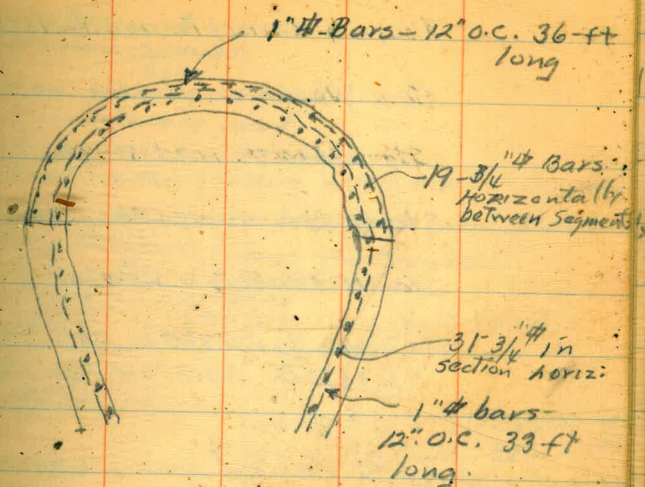 1"⌗-Bars - 12" O.C. 36-ft
long
19 - 3/4"⌗ Bars.
Horizontally
between segments
31-3/4"⌗ in
section horiz:
1"⌗ bars-
12". O.C. 33-ft
long.